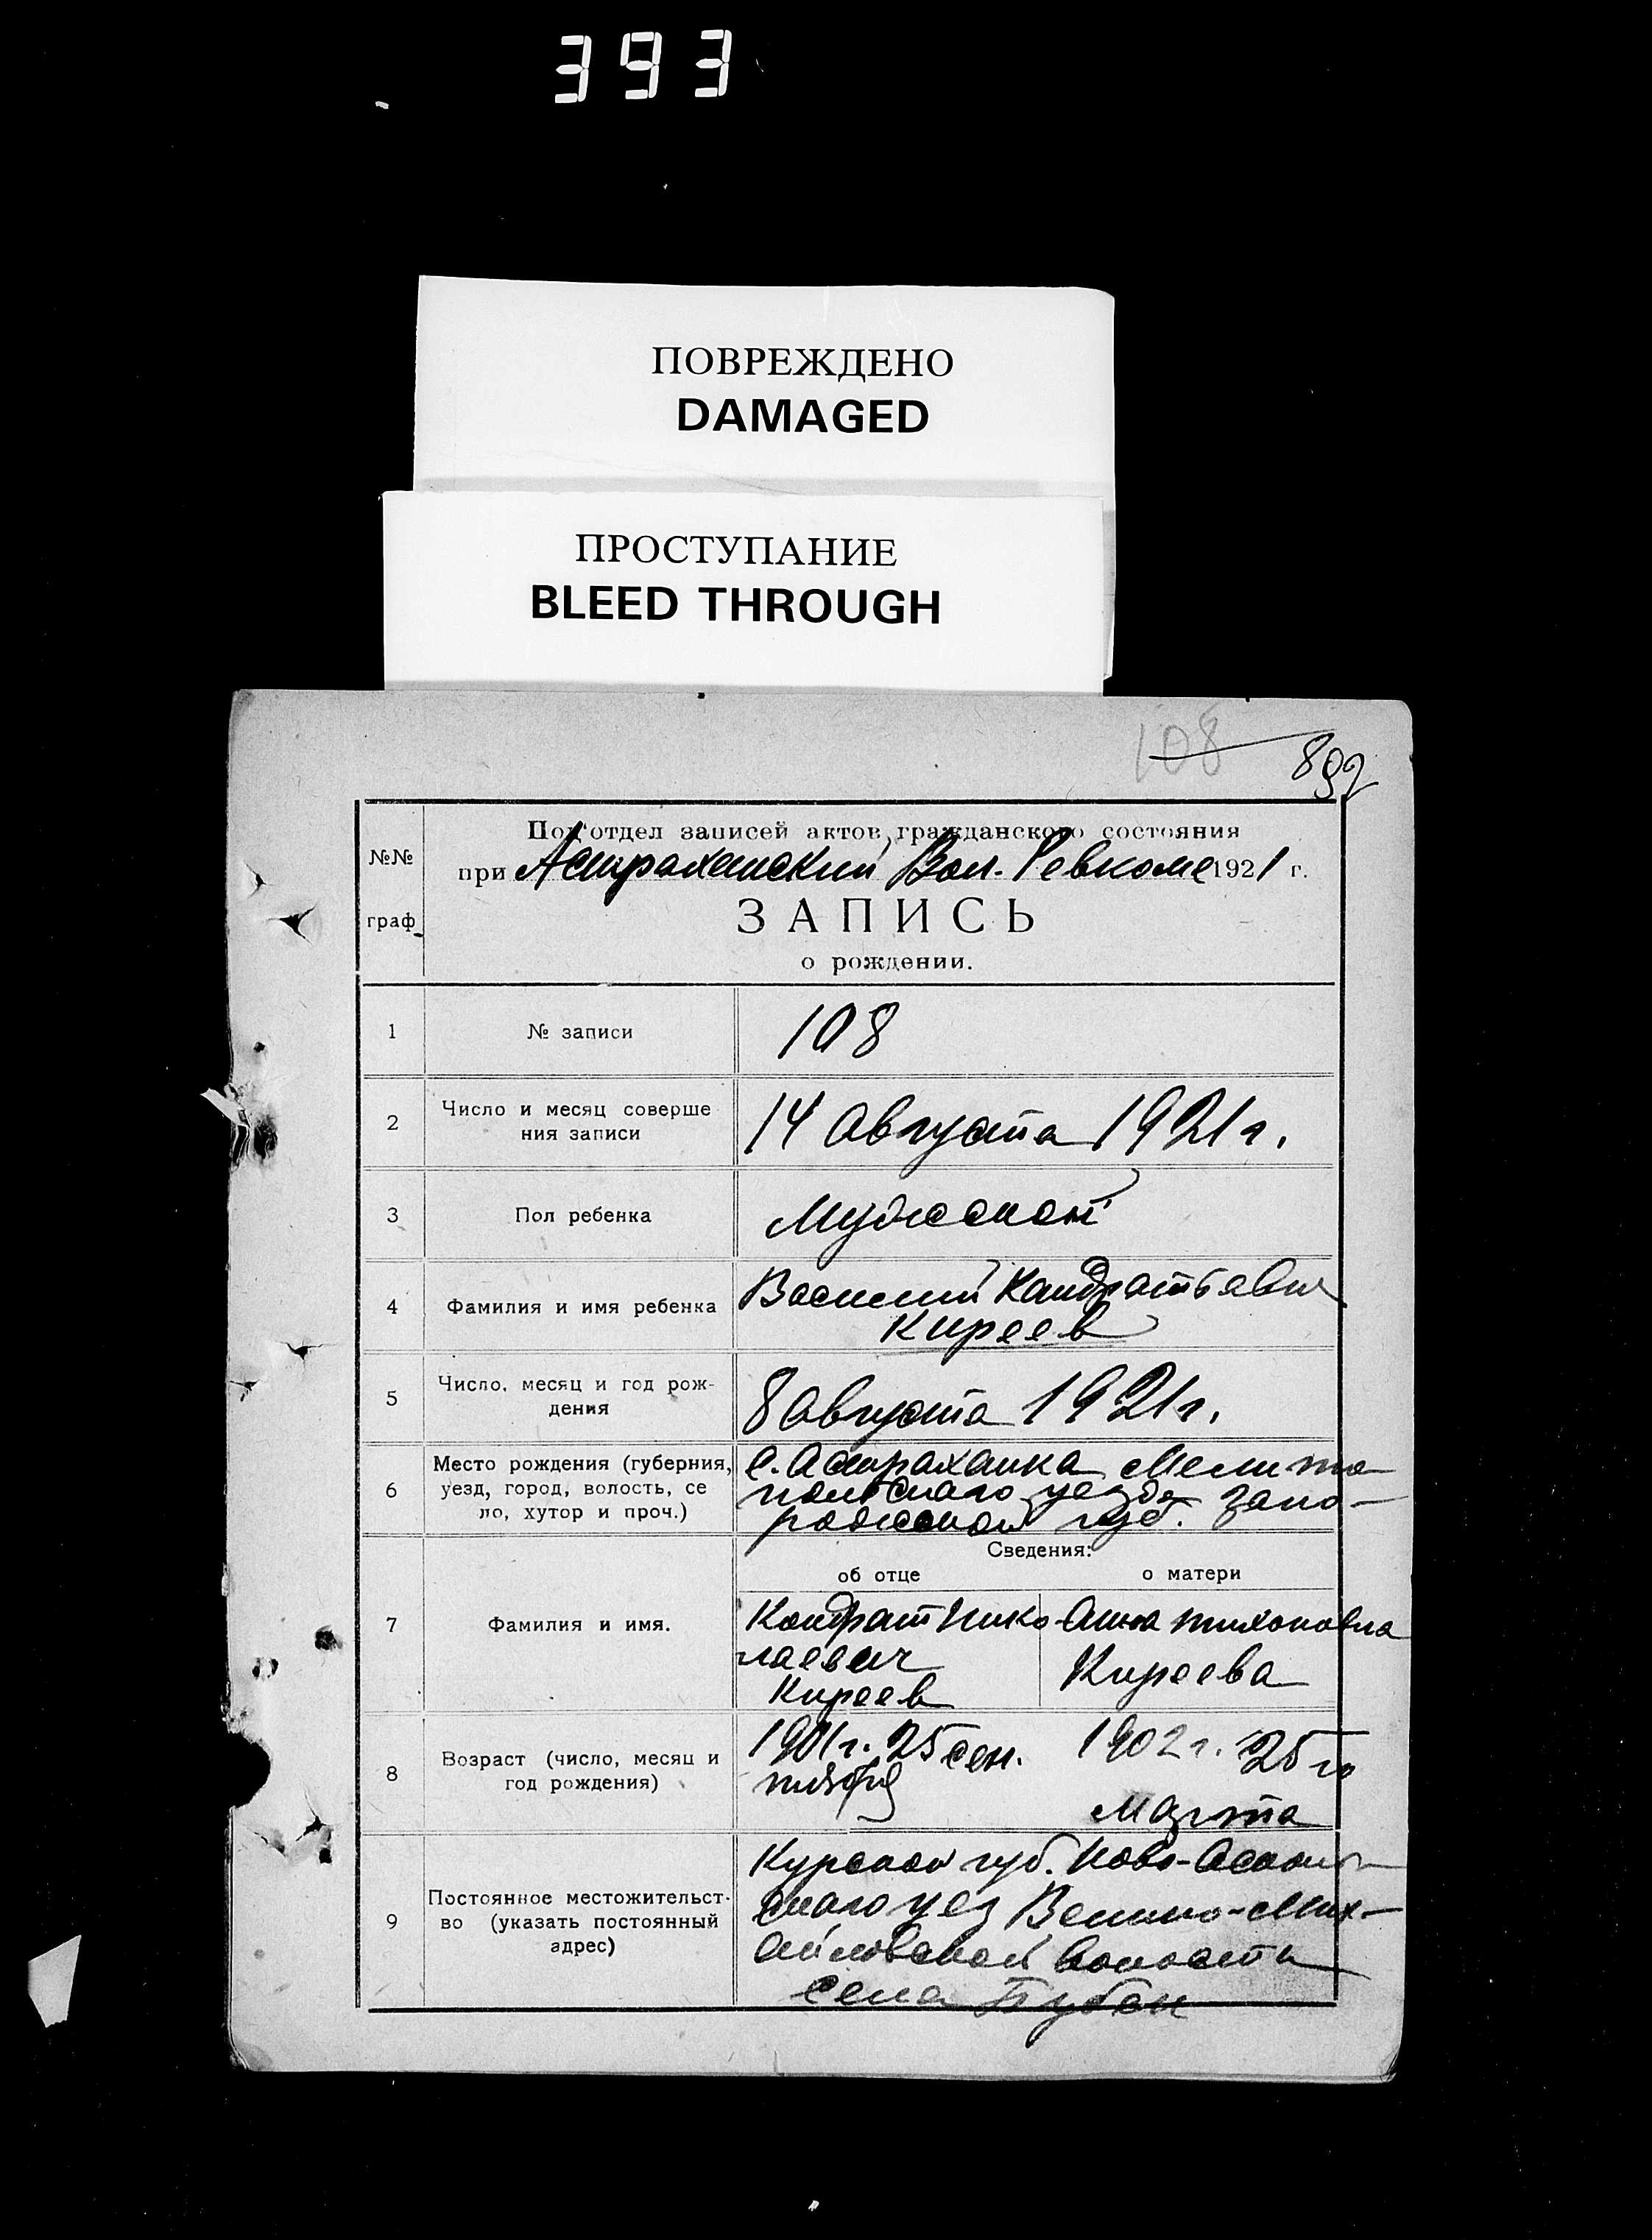 393
ПОВРЕЖДЕНО
DAMAGED
ПРОСТУПАНИЕ
BLEED THROUGH
108
892
№№
граф
Под'отдел записей актов гражданского состояния
при Астраханский Вол. Ревкоме 1921 г.
ЗАПИСЬ
о рождении.
1
№ записи
108
2
Число и месяц соверше
ния записи
14 Августа 1921 г.
3
Пол ребенка
Мужской
4
Фамилия и имя ребенка
Василий Кандратьевич
Киреев
5
Число, месяц и год рож-
дения
8 Августа 1921 г.
6
Место рождения (губерния,
уезд, город, волость, се
ло, хутор и проч.)
с. Астраханка Мелито
польскаго уезда Запо-
рожской губ.
Сведения:
об отце
о матери
7
Фамилия и имя.
Кондрат Нико
лаевич
Киреев
Анна Тихоновна
Киреева
8
Возраст (число, месяц и
год рождения)
1901 г. 25 сен.
тября
1902 г. 25 го
Марта
9
Постоянное местожительст-
во (указать постоянный
адрес)
Курской губ. Ново-Оскол
скаго уез Велико-Мих-
айловской волости
села